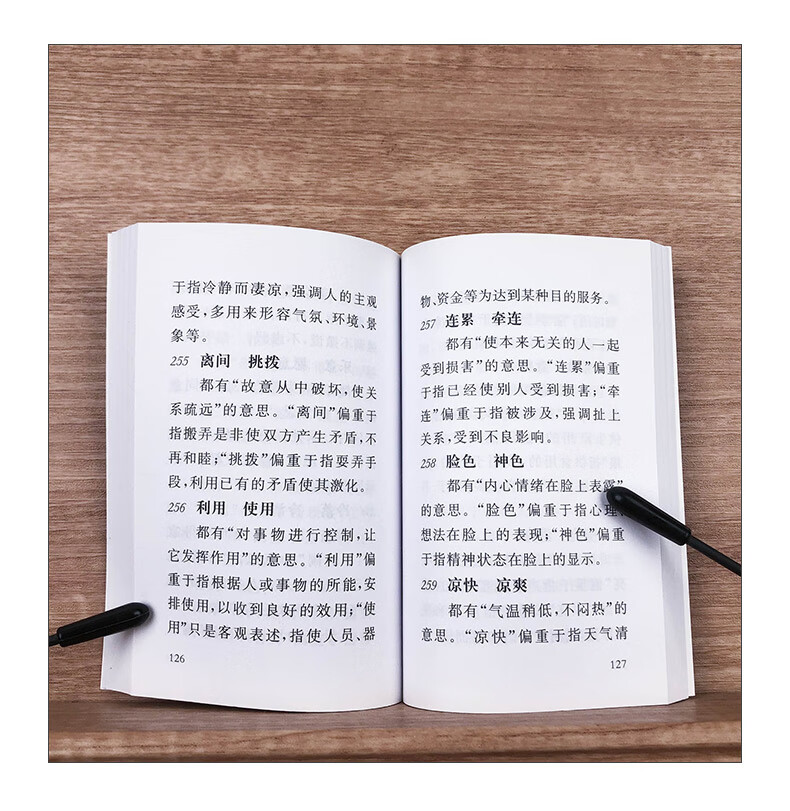 于指冷静而凄凉，强调人的主观
感受，多用来形容气氛、环境、景
象等。
255 离间 挑拨
都有“故意从中破坏，使关
系疏远”的意思。“离间”偏重于
指搬弄是非使双方产生矛盾，不
再和睦；“挑拨”偏重于指耍弄手
段，利用已有的矛盾使其激化。
256 利用 使用
都有“对事物进行控制，让
它发挥作用”的意思。“利用”偏
重于指根据人或事物的所能，安
排使用，以收到良好的效用；“使
用”只是客观表述，指使人员、器
126
物、资金等为达到某种目的服务。
257 连累 牵连
都有“使本来无关的人一起
受到损害”的意思。“连累”偏重
于指已经使别人受到损害；“牵
连”偏重于指被涉及，强调扯上
关系，受到不良影响。
258 脸色 神色
都有“内心情绪在脸上表露”
的意思。“脸色”偏重于指心理、
想法在脸上的表现；“神色”偏重
于指精神状态在脸上的显示。
259 凉快 凉爽
都有“气温稍低，不闷热”的
意思。“凉快”偏重于指天气清
127